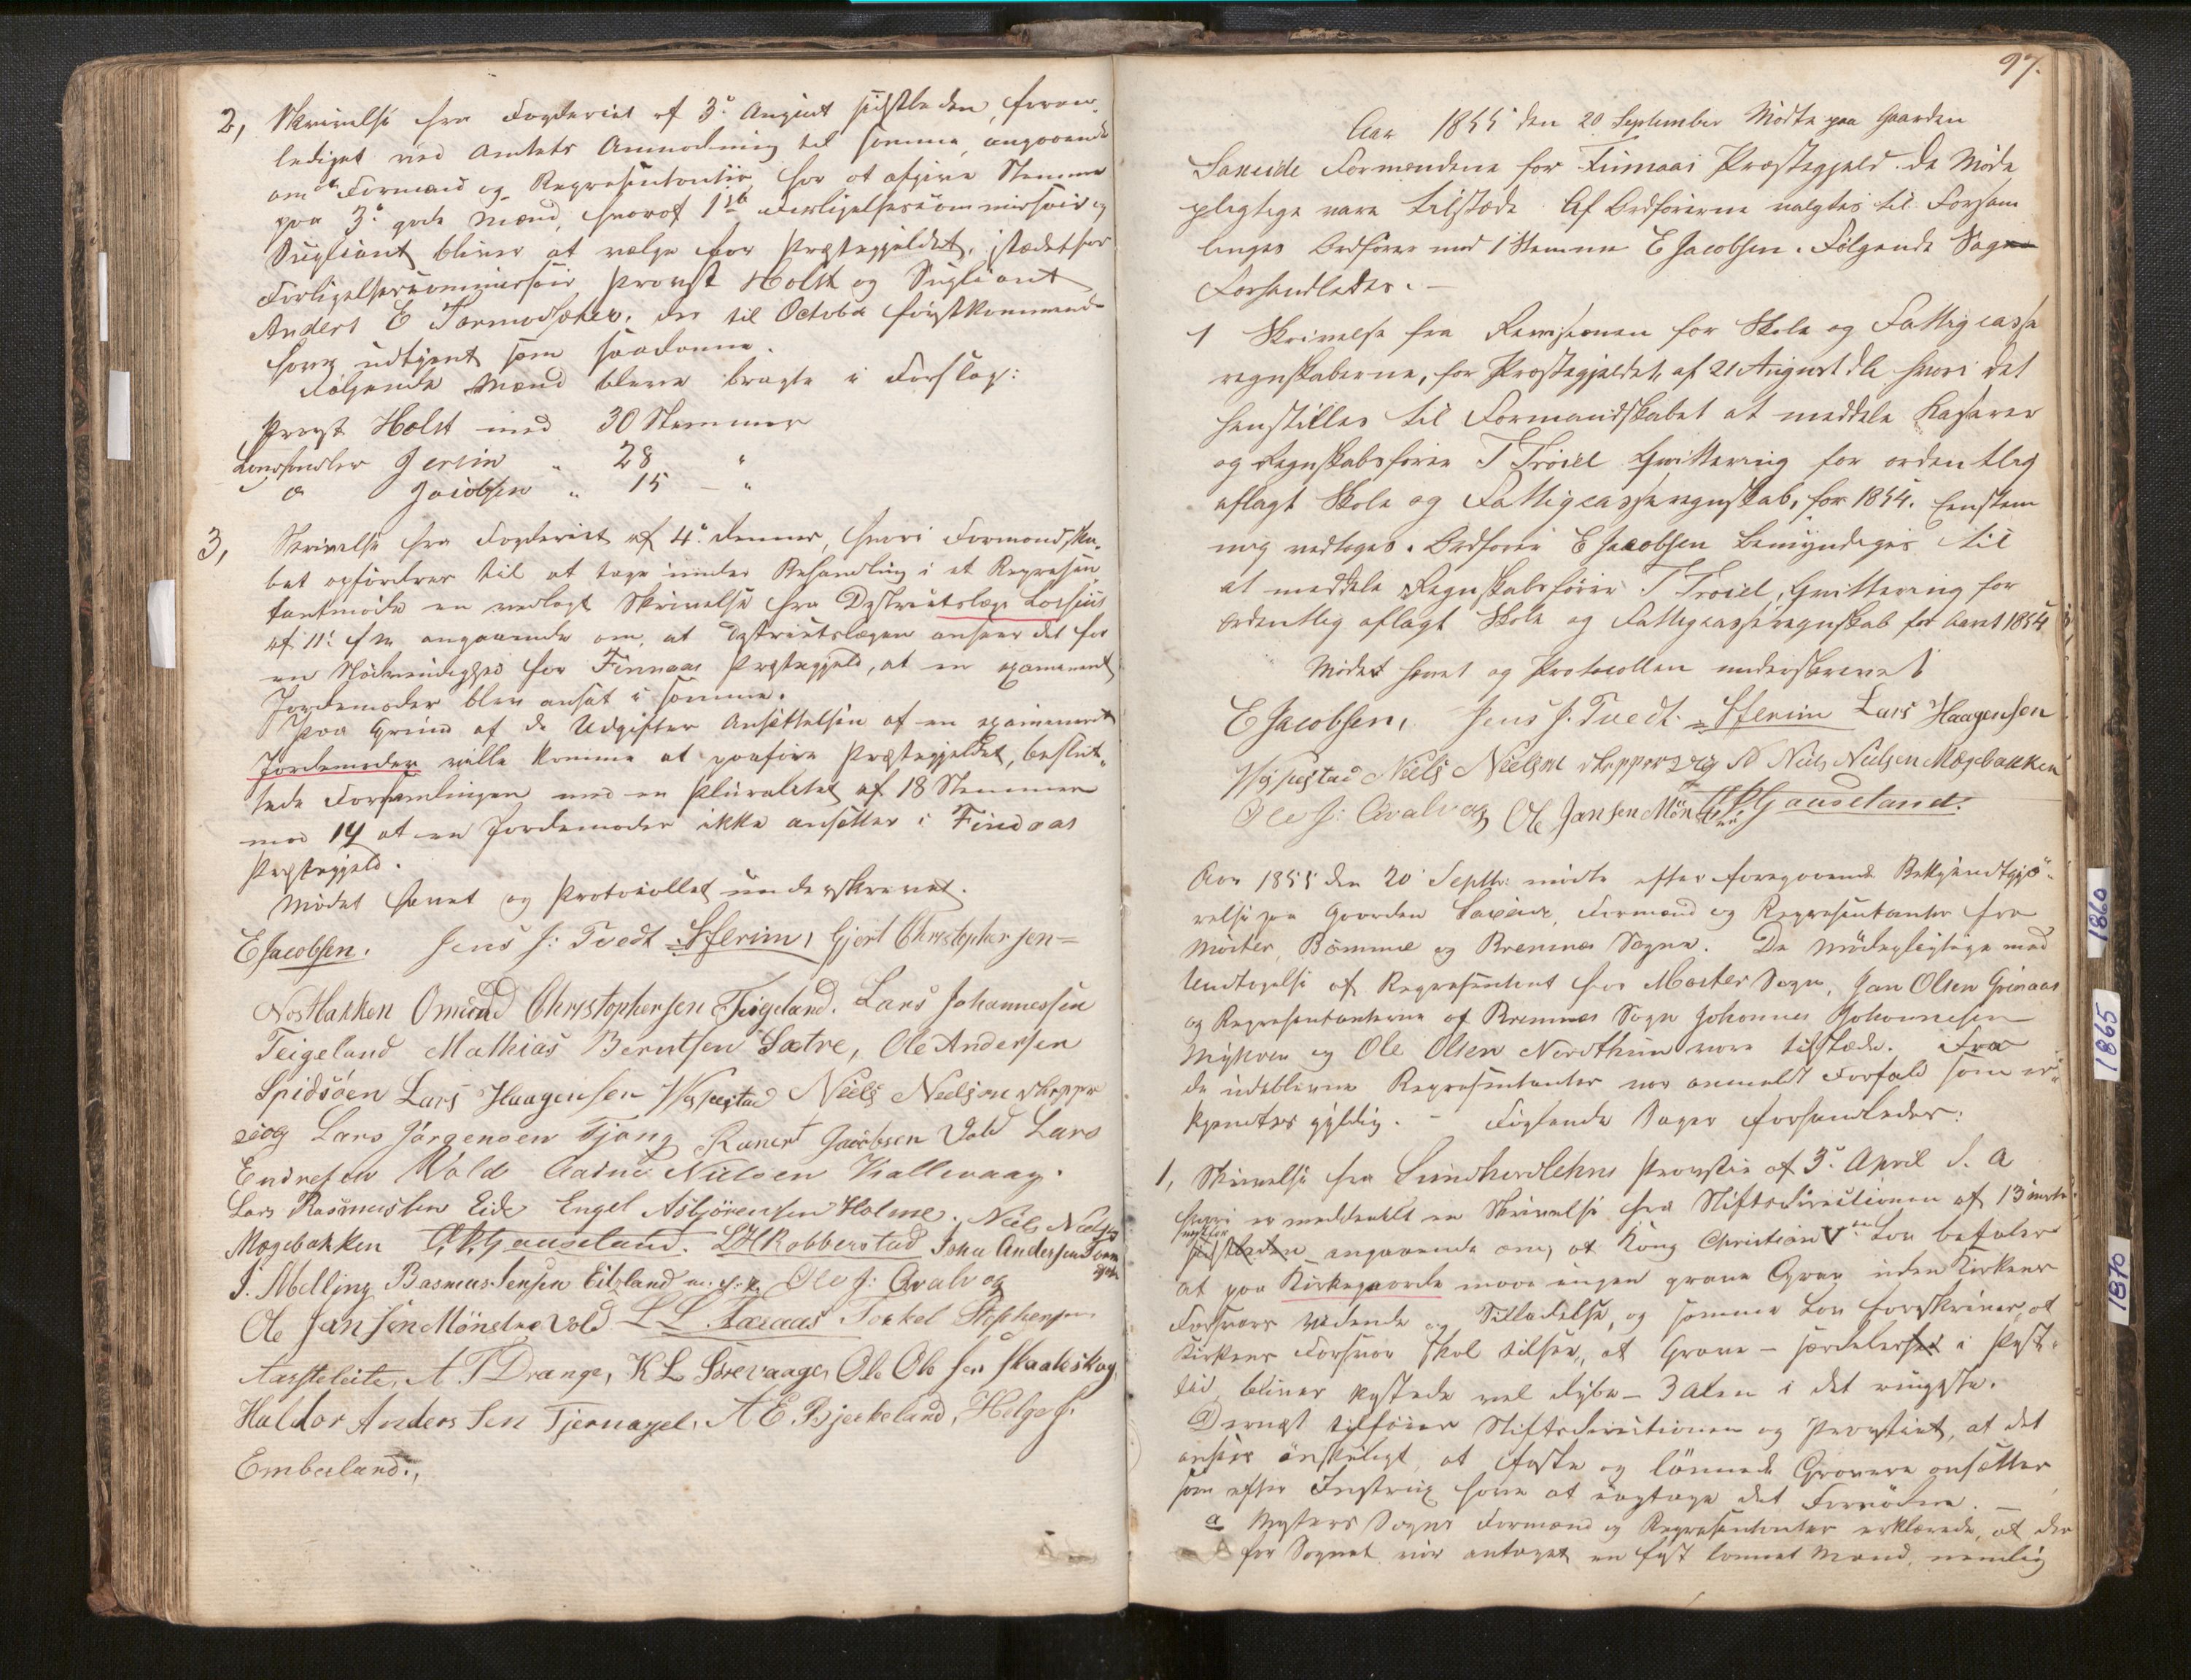 2, Skrivelse fra Fogderiet af 3de August sidstleden, foran-
lediget ved Amtets Anmodning til samme, angaaende
om at Formænd og Repræsentanter har at afgive Stemme
paa 3de gode Mænd, hvoraf 1ste Forligelsescommissair og
Supleant bliver at vælge for Præstegjeldet, istædetfor
Forligelsescommissair Provst Holst og Supleant
Anders E Tormodsæter, der til October förstkommende
have udtjent som saadanne.
Fölgende Mænd bleve bragte i Forslag:
Provst Holst med 30 Stemmer
Landhandler Gerim " 28 "
" Jacobsen " 15 - "
3, Skrivelse fra Fogderiet af 4de dennes, hvori Formandska-
bet opfordres til at tage under Behandling i et Repræsen-
tantmöde en vedlagt Skrivelse fra Dystrictslæge Lossius
af 11te f. M. angaaende om, at Dystrictslægen anseer det for
en Nödvendighed for Finnaas Præstegjeld, at en examineret
Jordemoder blev ansat i samme.
Paa Grund af de Udgifter Ansættelsen af en examineret
Jordemoder ville komme at paaföre Præstegjeldet, beslut-
tede Forsamlingen med en Pluralitet af 18 Stemmer
mod 14 at en Jordemoder ikke ansættes i Findaas
Præstegjeld.
Mödet hævet og Protocollet underskrevet.
E Jacobsen. Jens J: Tvedt SGerim, Gjert Christophersen=
Nordbakken Omund Christophersen Teigeland. Lars Johannessen
Teigeland Mathias Berntsen Sætre, Ole Andersen
Spidsöen Lars Haagensen Niels Nielsen Skeppe
viog Lars Jörgensen Tjong Ranert Jacobsen Vold Lars
Endresen Vold Aadne Nielsen Kallevaag.
Lars Rasmussen Eide Engel Asbjörensen Holme. Niels Nielsen
Mogebakken Gauseland. LHRobberstad Joha Andersen
J. Melling Rasmus Jensen Eitland m. p: P. Ole J: Qvalvog
Ole Jansen Mönstrevold L L Aaraas Torkel Stephensen
Aassteleite, A. T Drange, K L Grevaage, Ole Olesen Skaaleskog,
Haldor Andersen Tjernagel, A E. Bjerkeland, Helge J.
Emberland.,
97.
Aar 1855 den 20 September Mödte paa Gaarden
Saxeide Formændene for Finnaas Præstegjeld. De Möde
pligtige vare tilstæde. Af Ordförerne valgtes til Forsam
lingens Ordförer med 1 Stemme E Jacobsen. Fölgende Sager
Forhandledes. -
1 Skrivelse fra Revisionen for Skole og Fattigcasse
regnskaberne, for Præstegjeldet, af 21 August dA hvori det
henstilles til Formandskabet at meddele Kasserer
og Regnskabsförer T Troiel Qvittering for ordentlig
aflagt Skole og Fattigcasseregnskab, for 1854. Eenstem
mig vedtoges. Ordförer E Jacobsen bemyndiges til
at meddele Regnskabsförer T Troiel, Qvittering for
ordentlig aflagt Skole og Fattigcasseregnskab for Aaret 1854
Mödet hævet og Protocollen underskrevet
E Jacobsen, Jens J. Tvedt. SGerim Lars Haagensen
Niels Nielsen Skeppeviog Niels Nielsen Mogebakken
Ole J: Qvalvog Ole Jansen Mön Gauseland.
Aar 1855 den 20 Septbr: mödte efter foregaaende Bekjendtgjö-
relse paa Gaarden Saxeide, Formænd og Repræsentanter fra
Moster, Bömmel og Bremnes Sogne. De Mödepligtige med
Undtagelse af Repræsentant for Moster Sogn, Jan Olsen Grinaas
og Repræsentanterne af Bremnes Sogn Johannes Johannesen
Myhren og Ole Olsen Nordthun vare tilstæde. Fra
de udeblevne Repræsentanter var anmeldt Forfald som er-
kjendtes gyldig. - Fölgende Sager forhandledes:
1, Skrivelse fra Sundhordlehns Provstie af 3de April d. A
hvori er meddeelt en Skrivelse fra Stiftsdirectionen af 13 Marts
angaaende om, at Kong Christian Vtes Lov befaler
at paa Kirkegaarde maae ingen grave Grav uden Kirkens
Forsvars Vidende og Tilladelse, og samme Lov foreskriver, at
Kirkens Forsvar skal tilsee, at Grave - særdeles i Pest-
tid, bliver kastede vel dybe - 3 Alen i det ringeste.
Dernæst tilföier Stiftsdirectionen og Provstiet, at det
ansees önskeligt, at faste og lönnede Gravere ansættes
som efter Instrux have at iagttage det Fornödne. -
a Mosters Sogns Formænd og Repræsentanter erklærede, at der
for Sognet var antaget en fast lönnet Mand, nemlig
1860
1865
1870